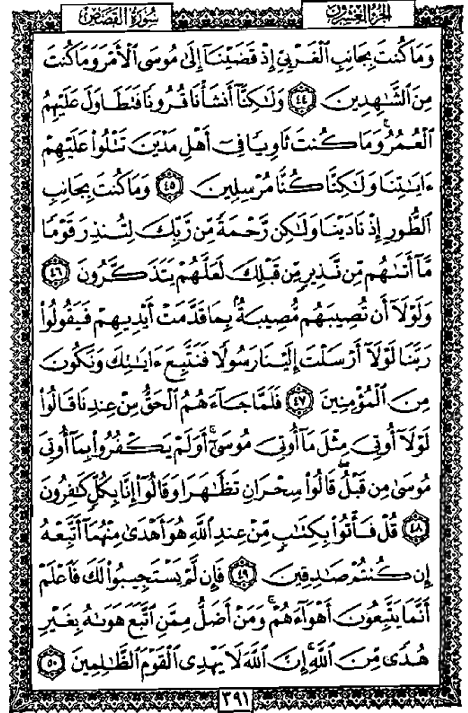 الجزء العشرون سورة القصص
وَمَا كُنتَ بِجَانِبِ الْغَرْبِيِّ إِذْ قَضَيْنَا إِلَىٰ مُوسَى الْأَمْرَ وَمَا كُنتَ
مِنَ الشَّاهِدِينَ ٤٤ وَلَٰكِنَّا أَنشَأْنَا قُرُونًا فَتَطَاوَلَ عَلَيْهِمُ
الْعُمُرُ وَمَا كُنتَ ثَاوِيًا فِي أَهْلِ مَدْيَنَ تَتْلُوا عَلَيْهِمْ
ءَايَٰتِنَا وَلَٰكِنَّا كُنَّا مُرْسِلِينَ ٤٥ وَمَا كُنتَ بِجَانِبِ
الطُّورِ إِذْ نَادَيْنَا وَلَٰكِن رَّحْمَةً مِّن رَّبِّكَ لِتُنذِرَ قَوْمًا
مَّا أَتَىٰهُم مِّن نَّذِيرٍ مِّن قَبْلِكَ لَعَلَّهُمْ يَتَذَكَّرُونَ ٤٦
وَلَوْلَا أَن تُصِيبَهُم مُّصِيبَةٌ بِمَا قَدَّمَتْ أَيْدِيهِمْ فَيَقُولُوا
رَبَّنَا لَوْلَا أَرْسَلْتَ إِلَيْنَا رَسُولًا فَنَتَّبِعَ ءَايَٰتِكَ وَنَكُونَ
مِنَ الْمُؤْمِنِينَ ٤٧ فَلَمَّا جَاءَهُمُ الْحَقُّ مِنْ عِندِنَا قَالُوا
لَوْلَا أُوتِيَ مِثْلَ مَا أُوتِيَ مُوسَىٰ أَوَلَمْ يَكْفُرُوا بِمَا أُوتِيَ
مُوسَىٰ مِن قَبْلُ قَالُوا سِحْرَانِ تَظَٰهَرَا وَقَالُوا إِنَّا بِكُلٍّ كَٰفِرُونَ
٤٨ قُلْ فَأْتُوا بِكِتَٰبٍ مِّنْ عِندِ اللَّهِ هُوَ أَهْدَىٰ مِنْهُمَا أَتَّبِعْهُ
إِن كُنتُمْ صَٰدِقِينَ ٤٩ فَإِن لَّمْ يَسْتَجِيبُوا لَكَ فَاعْلَمْ
أَنَّمَا يَتَّبِعُونَ أَهْوَاءَهُمْ وَمَنْ أَضَلُّ مِمَّنِ اتَّبَعَ هَوَىٰهُ بِغَيْرِ
هُدًى مِّنَ اللَّهِ إِنَّ اللَّهَ لَا يَهْدِي الْقَوْمَ الظَّٰلِمِينَ ٥٠
٣٩١